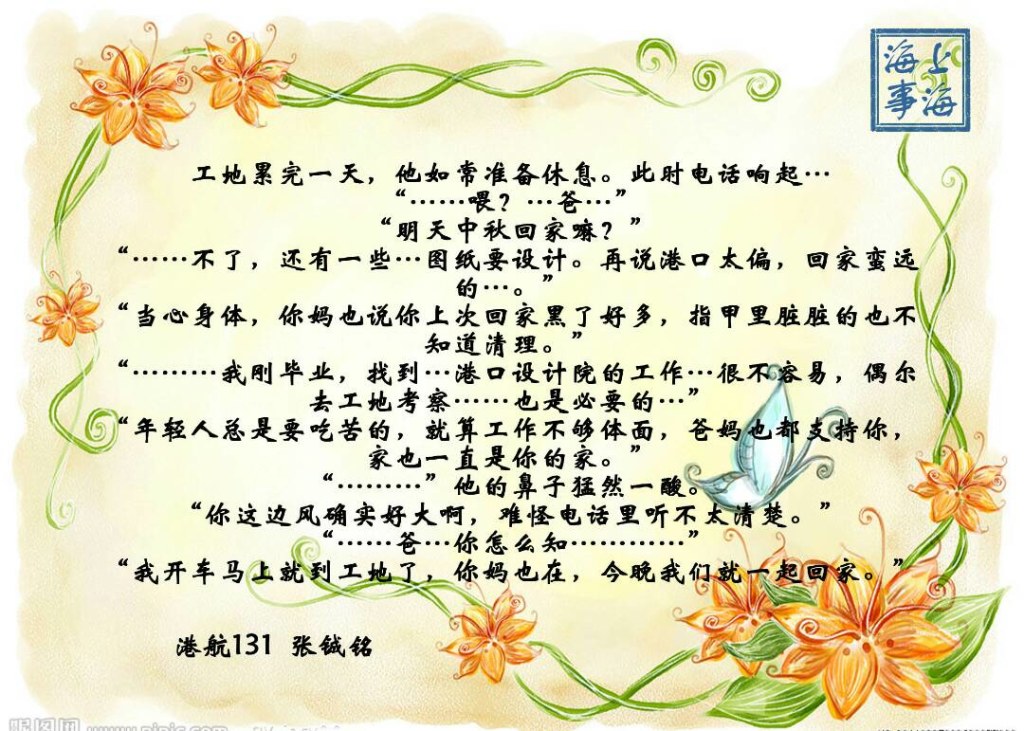 上海
海事
工地累完一天，他如常准备休息。此时电话响起…
“……喂？…爸…”
“明天中秋回家嘛？”
“……不了，还有一些…图纸要设计。再说港口太偏，回家蛮远
的…。”
“当心身体，你妈也说你上次回家黑了好多，指甲里脏脏的也不
知道清理。”
“………我刚毕业，找到…港口设计院的工作…很不容易，偶尔
去工地考察……也是必要的…”
“年轻人总是要吃苦的，就算工作不够体面，爸妈也都支持你，
家也一直是你的家。”
“………”他的鼻子猛然一酸。
“你这边风确实好大啊，难怪电话里听不太清楚。”
“……爸…你怎么知…………”
“我开车马上就到工地了，你妈也在，今晚我们就一起回家。”
港航131 张铖铭
昵图网 www.nipic.com